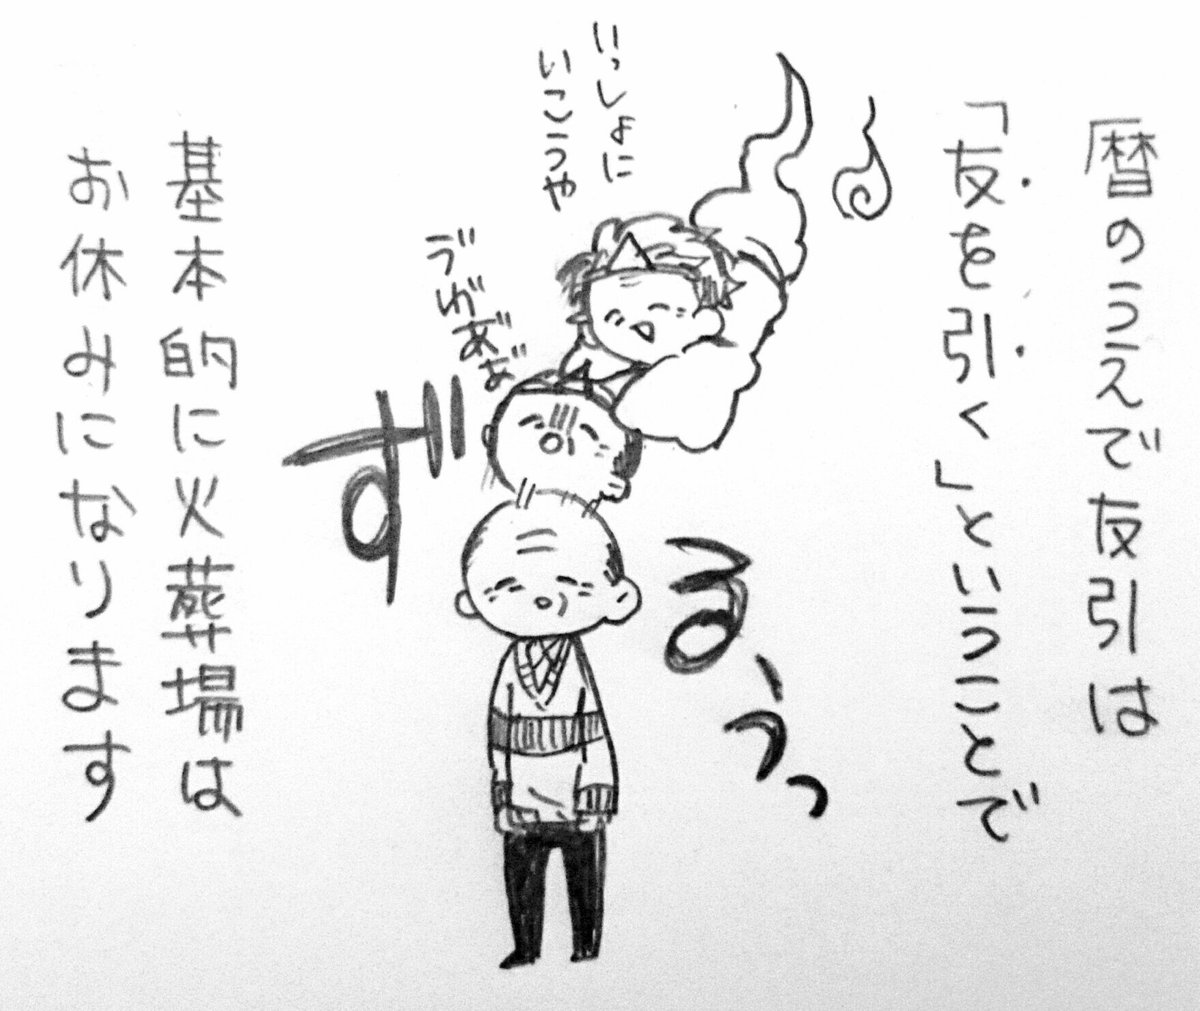 暦のうえで友引は
「友を引く」ということで
いっしょに
いこうや
ゔがあ゛あ゛
ずる、うっ
基本的に火葬場は
お休みになります